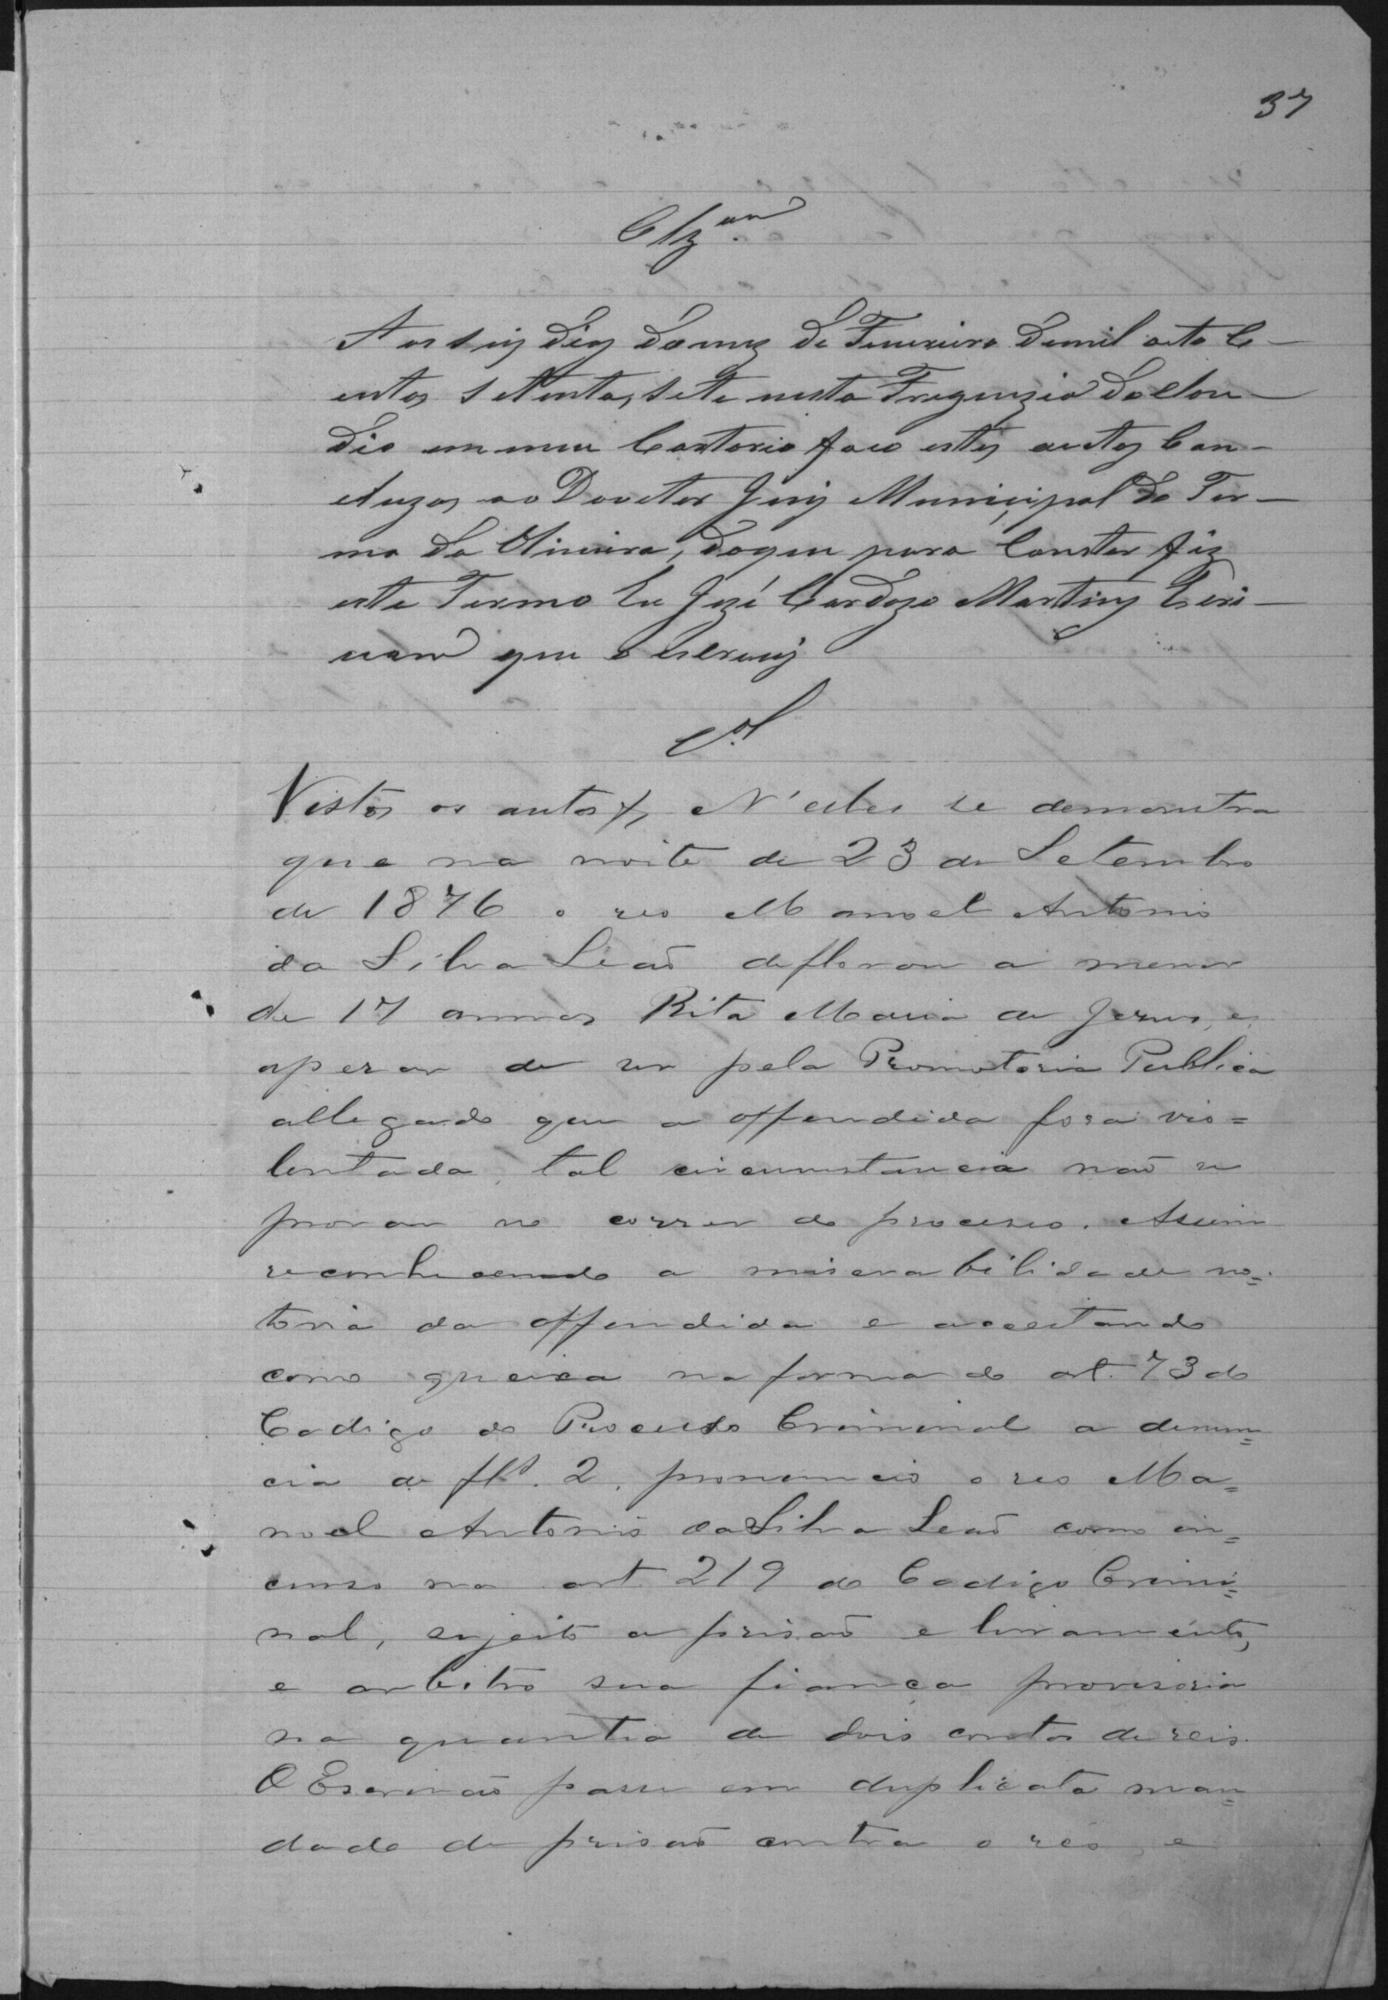 37
Clz.am
Aos seis dias do mez de Fevereiro de mil oito C-
entos setenta, sete nesta Freguezia do
em meu Cartorio faço estes autos Con-
cluzos ao Doutor Juiz Municipal do Ter-
mo da, do que para Constar fiz
este Termo Eu José Cardozo Martins Escri-
vam que o escrevij
Vistos os autos, N'elles se demonstra
que na noite de 23 de Setembro
de 1876 o reo Manoel Antonio
da Silva Leaõ deflorou a menor
de 17 annos Rita Maria de Jesus, e
apezar de ser pela Promotoria Publica
allegado que a offendida fora vio=
lentada, tal circumstancia naõ se
provou no correr do processo. Assim
reconhecendo a miserabilidade no=
toria da offendida e acceitando
como queixa na forma do art. 73 do
Codigo do Processo Criminal a denun=
cia de fls. 2, pronuncio o reo Ma=
noel Antonio da Silva Leaõ como in=
curso no art 219 do Codigo Crimi=
nal, sujeito a prisaõ e livramento,
e arbitro sua fiança provisoria
na quantia de dois contos de reis.
O Escrivaõ passe em duplicata man=
dado de prisaõ contra o reo, e